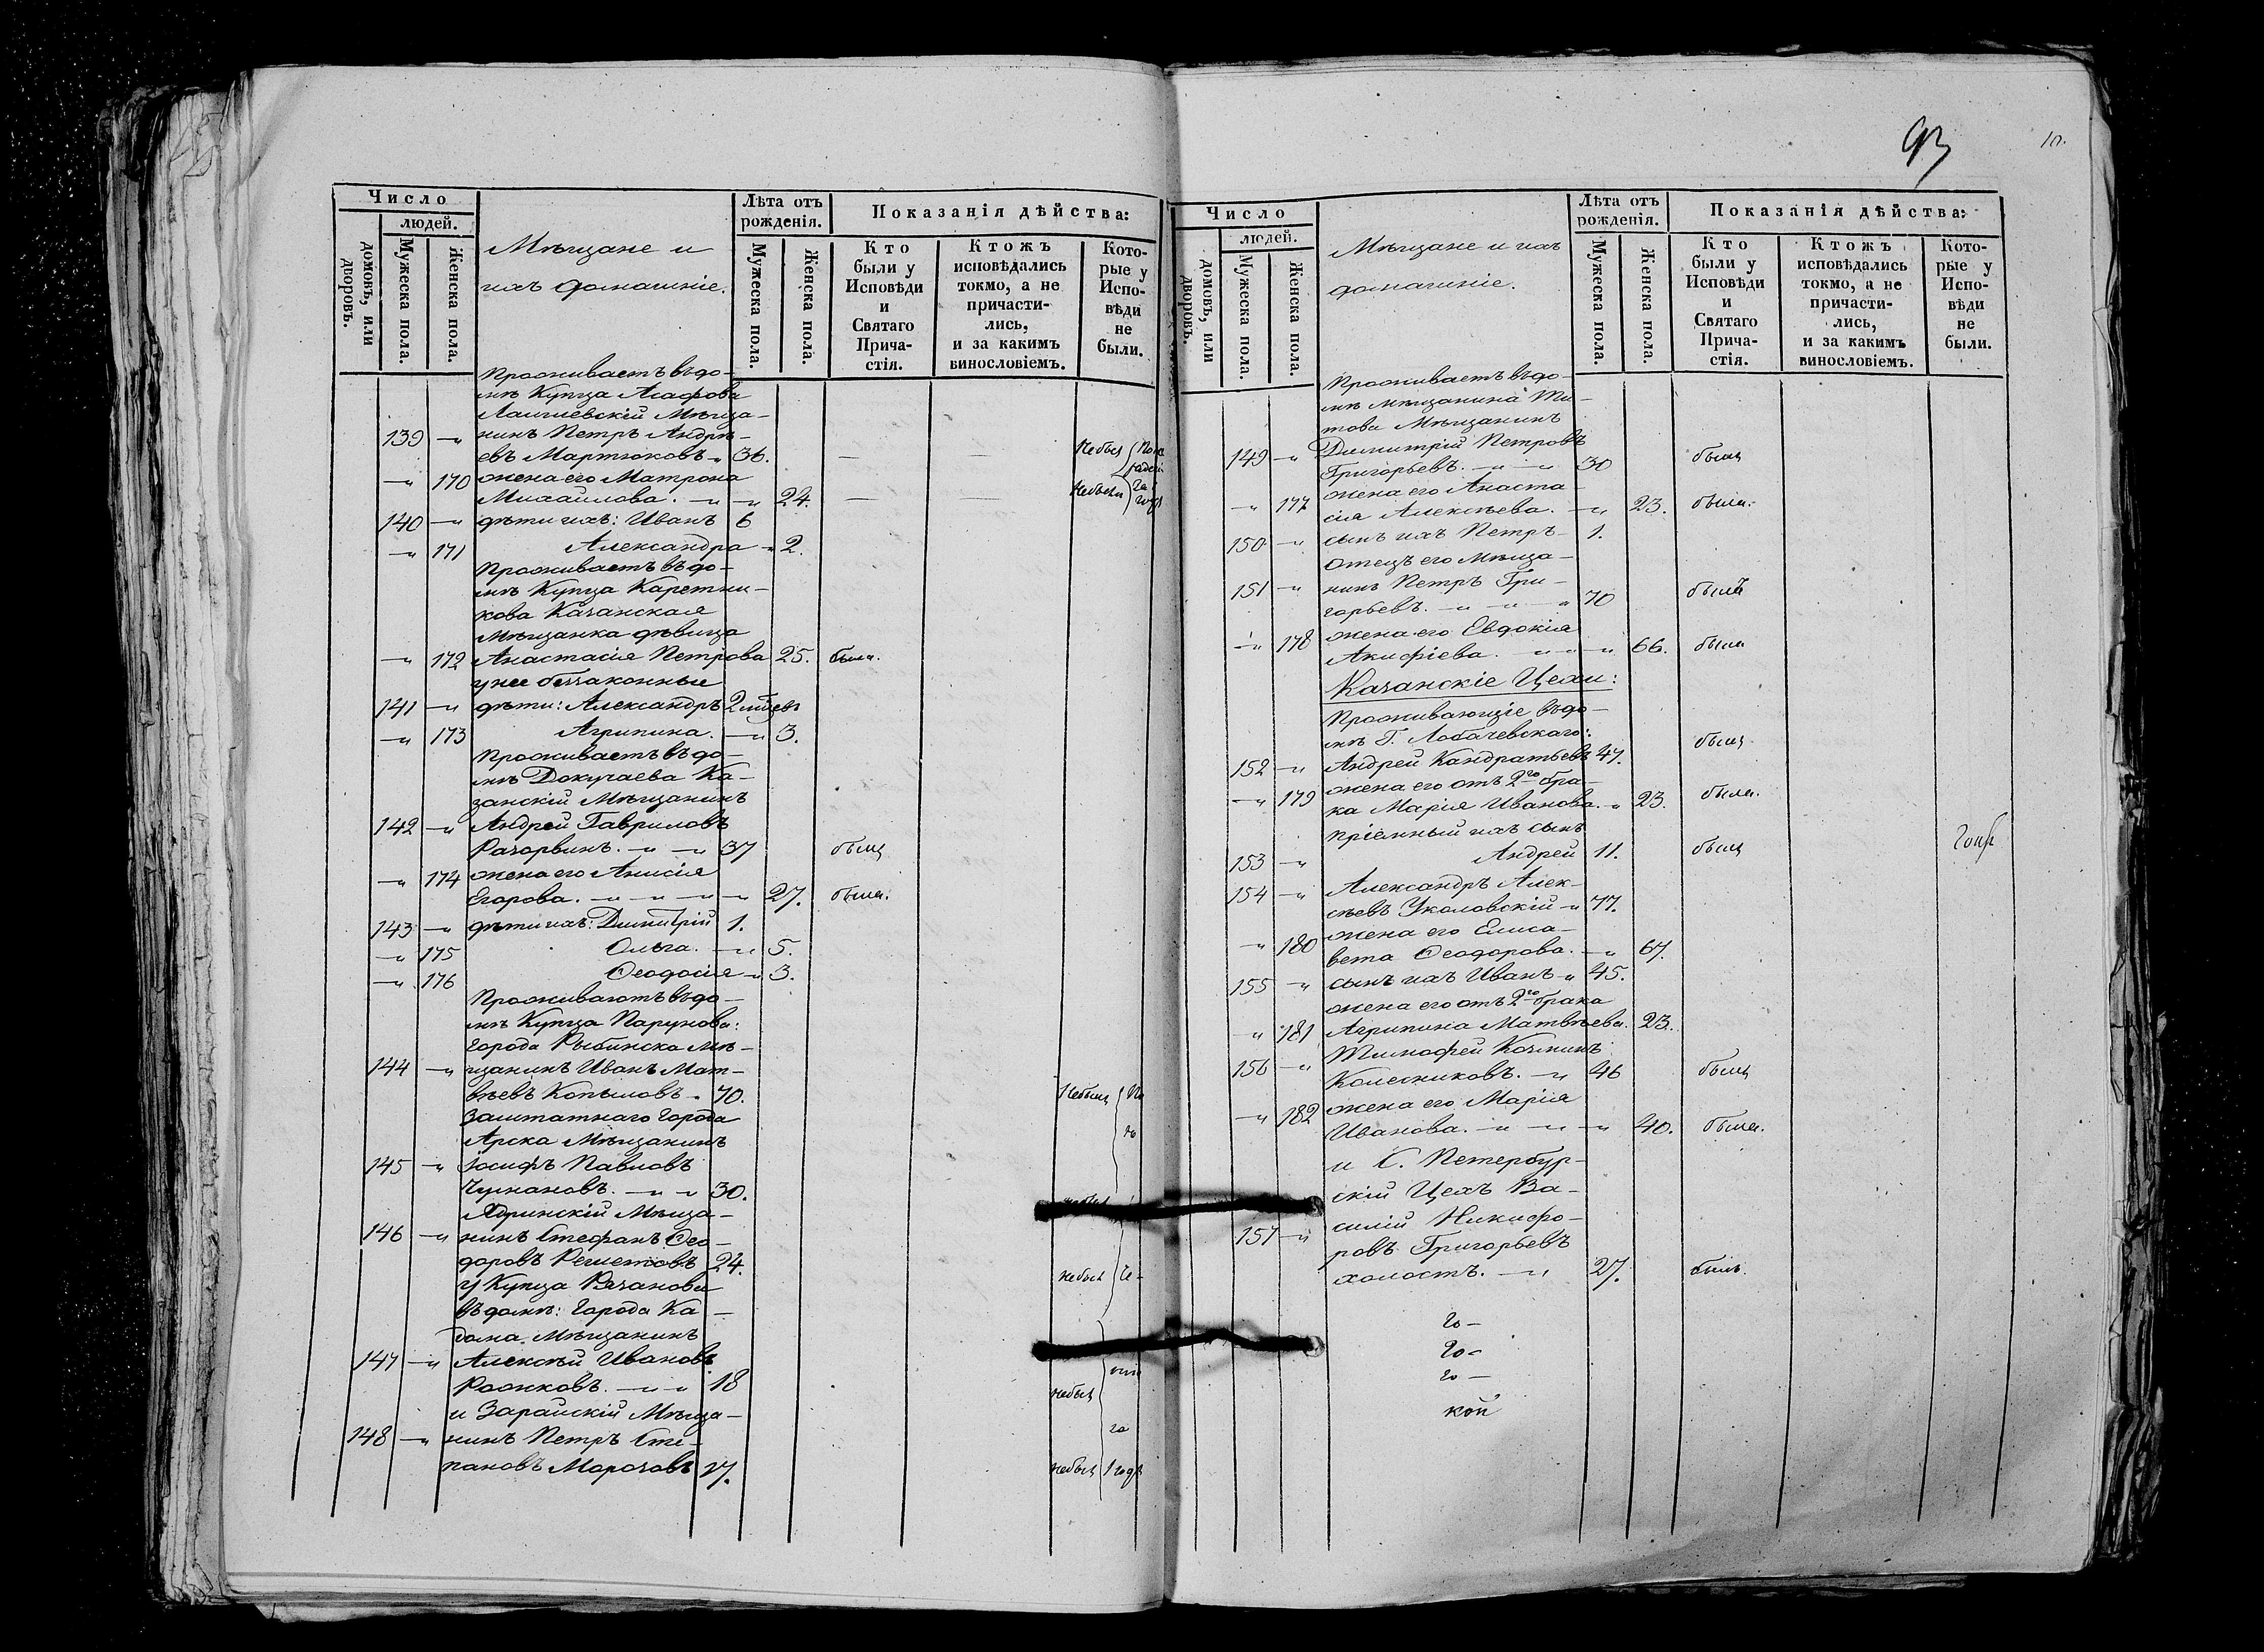 Число
людей.
домовъ, или дворовъ.
Мужеска пола.
Женска пола.
Мѣщане и
ихъ домашніе.
Лѣта отъ рожденія.
Мужеска пола.
Женска пола.
Показанія дѣйства:
Кто были у Исповѣди и Святаго Причастія.
Ктожъ исповѣдались токмо, а не причастились, и за какимъ винословіемъ.
Которые у Исповѣди не были.
Проживаетъ въ до-
мѣ Купца Асафова
Лаишевскій Мѣща-
139 —"— нинъ Петръ Андрѣ-
евъ Мартюковъ " 36. — — Небылъ
—"— 170 жена его Матрона
Михаилова. —"—"— 24. — — Небыла
140 —"— дѣти ихъ: Иванъ 6
—"— 171 Александра " 2.
Проживаетъ въ до-
мѣ Купца Каретни-
кова Казанская
Мѣщанка дѣвица
—"— 172 Анастасія Петрова 25. была.
у нее беззаконные
141 —"— дѣти: Александръ 2
—"— 173 Агрипина. —"— 3.
Проживаетъ въ до-
мѣ Докучаева Ка-
занскій Мѣщанинъ
142 —"— Андрей Гавриловъ
Разорвинъ. —"—"— 37 былъ
—"— 174 жена его Анисія
Егорова. —"—"—"— 27. была.
143 —"— дѣти ихъ: Димитрій 1.
—"— 175 Ольга. —"— 5.
—"— 176 Ѳеодосія —"— 3.
Проживаютъ въ до-
мѣ Купца Парунова:
Города Рыбинска Мѣ-
144 —"— щанинъ Иванъ Мат-
вѣевъ Копыловъ " 70. Небылъ По
Заштатнаго Города
Арска Мѣщанинъ
145 —"— Іосифъ Павловъ
Чумановъ. —"—"— 30. небылъ
Ядринскій Мѣща-
146 —"— нинъ Стефанъ Ѳео-
доровъ Решетовъ 24. небылъ
У Купца Рязанова
въ домѣ: Города Ка-
дома Мѣщанинъ
147 —"— Алексѣй Ивановъ
Рожковъ. —"—"— 18 небылъ
и Зарайскій Мѣща-
148 —"— нинъ Петръ Сте-
пановъ Морозовъ 27. небылъ
93
10.
Число
людей.
домовъ, или дворовъ.
Мужеска пола.
Женска пола.
Мѣщане и ихъ
домашніе.
Лѣта отъ рожденія.
Мужеска пола.
Женска пола.
Показанія дѣйства:
Кто были у Исповѣди и Святаго Причастія.
Ктожъ исповѣдались токмо, а не причастились, и за какимъ винословіемъ.
Которые у Исповѣди не были.
Проживаетъ въ до-
мѣ мѣщанина Ти-
това Мѣщанинъ
149 —"— Димитрій Петровъ
Григорьевъ. —"—"— 30 былъ
—"— 177 жена его Анаста-
сія Алексѣева. —"— 23. была.
150 —"— сынъ ихъ Петръ 1.
Отецъ его Мѣща-
151 —"— нинъ Петръ Гри-
горьевъ. —"—"—"— 70 былъ
—"— 178 жена его Евдокія
Акифіева. —"—"— 66. была
Казанскіе Цехи:
Проживающіе въ до-
мѣ Г. Лобачевскаго:
152 —"— Андрей Кандратьевъ 47. былъ
жена его отъ 2го бра-
—"— 179 ка Марія Иванова. " 23. была.
пріемный ихъ сынъ
153 —"— Андрей 11. былъ
154 —"— Александръ Алек-
сѣевъ Уколовскій " 77.
—"— 180 жена его Елиса-
вета Ѳеодорова. —"— 67.
155 —"— сынъ ихъ Иванъ " 45.
жена его отъ 2го брака
—"— 181 Агрипина Матвѣева. 23.
156 —"— Тимофей Козминъ
Колесниковъ. —"— 46 былъ
—"— 182 жена его Марія
Иванова. —"—"—"— 40. была.
и С. Петербур-
скій Цехъ Ва-
157 —"— силій Никифо-
ровъ Григорьевъ
холостъ. —"— 27. былъ.